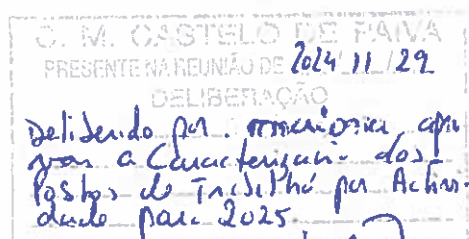 C. M. CASTELO DE PAIVA
PRESENTE NA REUNIÃO DE 2024/11/29
DELIBERAÇÃO
Deliberado por maioria, apro-
var a Caracterização dos
Postos de Trabalho por Activi-
dade para 2025.